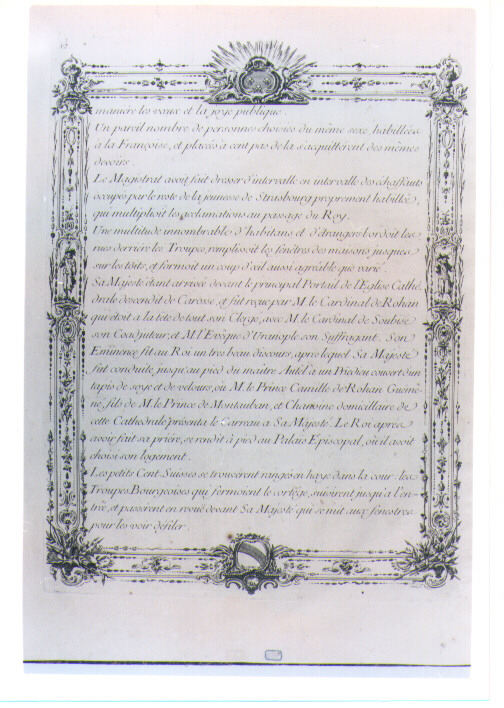 manière les vœux et la joye publique.
Un pareil nombre de personnes choisies du même sexe habillées
à la Françoise, et placés à cent pas de la s'acquittèrent des mêmes
devoirs.
Le Magistrat avoit fait dresser d'intervalle en intervalle des échaffauts
occupés par le reste de la jeunesse de Strasbourg proprement habillée,
qui multiplioit les acclamations au passage du Roy.
Une multitude innombrable d'habitans et d'étrangers bordoit les
rues derrière les Troupes, remplissoit les fenêtres des maisons jusques
sur les tôits, et formoit un coup d'œil aussi agréable que varié.
Sa Majesté étant arrivée devant le principal Portail de l'Eglise Cathé-
drale descendit de Carosse, et fut reçue par M. le Cardinal de Rohan
qui étoit à la tete de tout son Clergé, avec M. le Cardinal de Soubise
son Coadjuteur, et M. l'Evêque d'Uranople son Suffragant. Son
Eminence fit au Roi un tres beau discours, apres lequel Sa Majesté
fut conduite jusqu'au pied du maître Autel à un Priedieu couvert d'un
tapis de soye et de velours, où M. le Prince Camille de Rohan Guéme-
né, fils de M. le Prince de Montauban, et Chanoine domicillaire de
cette Cathédrale présenta le Carreau a Sa Majesté. Le Roi apres
avoir fait sa prière, se rendit à pied au Palais Episcopal, où il avoit
choisi son logement.
Les petits Cent-Suisses se trouvèrent rangés en haye dans la cour: les
Troupes Bourgeoises qui fermoient le cortége, suivirent jusqu'à l'en-
trée, et passerent en revuë devant Sa Majesté qui se mit aux fenestres
pour les voir défiler.